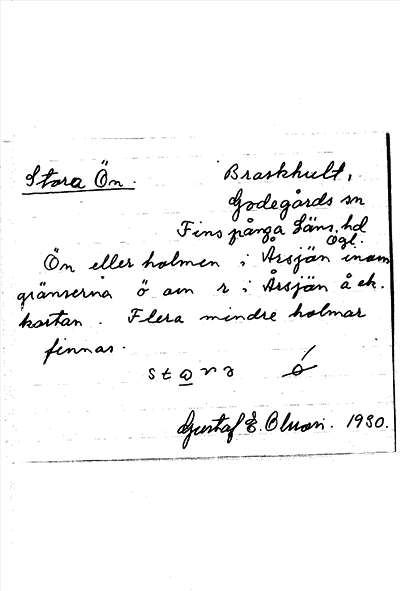 Stora Ön.
Braskhult,
Godegårds sn
Finspånga Läns hd
Ögl.
Ön eller holmen i Årsjön inom
gränserna ö om r i Årsjön å ek.
kartan. Flera mindre holmar
finnas.
Gustaf E. Olsson. 1930.